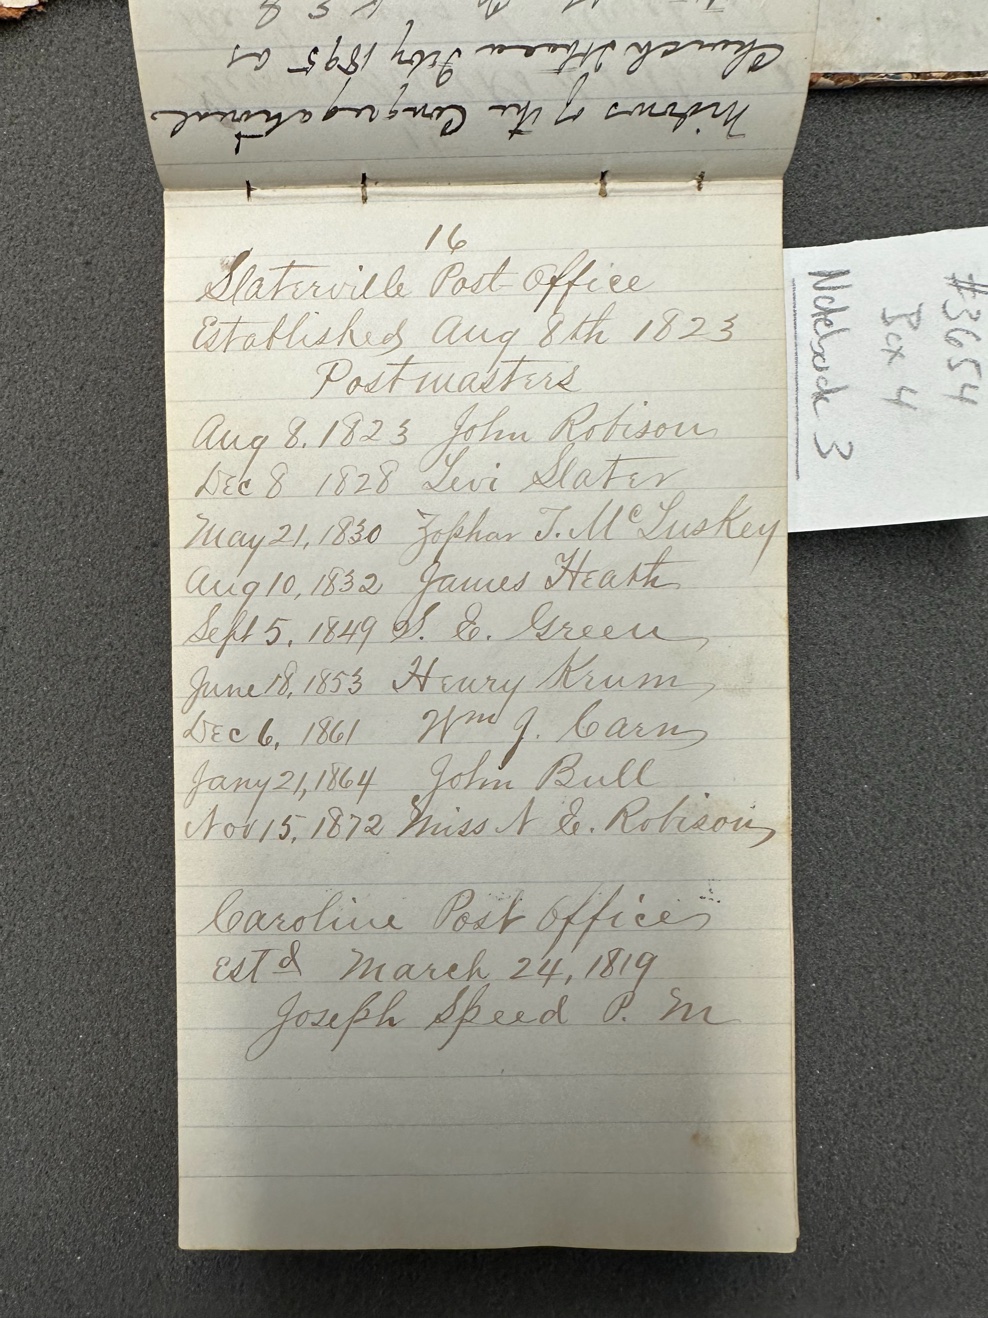 Widows of the Congregational
Church Ithaca Feby 1895 as
16
Slaterville Post Office
Established Aug 8th 1823
Postmasters
Aug 8, 1823 John Robison
Dec 8 1828 Levi Slater
May 21, 1830 Zophar T. McLuskey
Aug 10, 1832 James Heath
Sept 5, 1849 S. E. Green
June 18, 1853 Henry Krum
Dec 6, 1861 Wm J. Carns
Jany 21, 1864 John Bull
Nov 15, 1872 Miss N E. Robison
Caroline Post Office
Estd March 24, 1819
Joseph Speed P. M
#3654
Box 4
Notebook 3